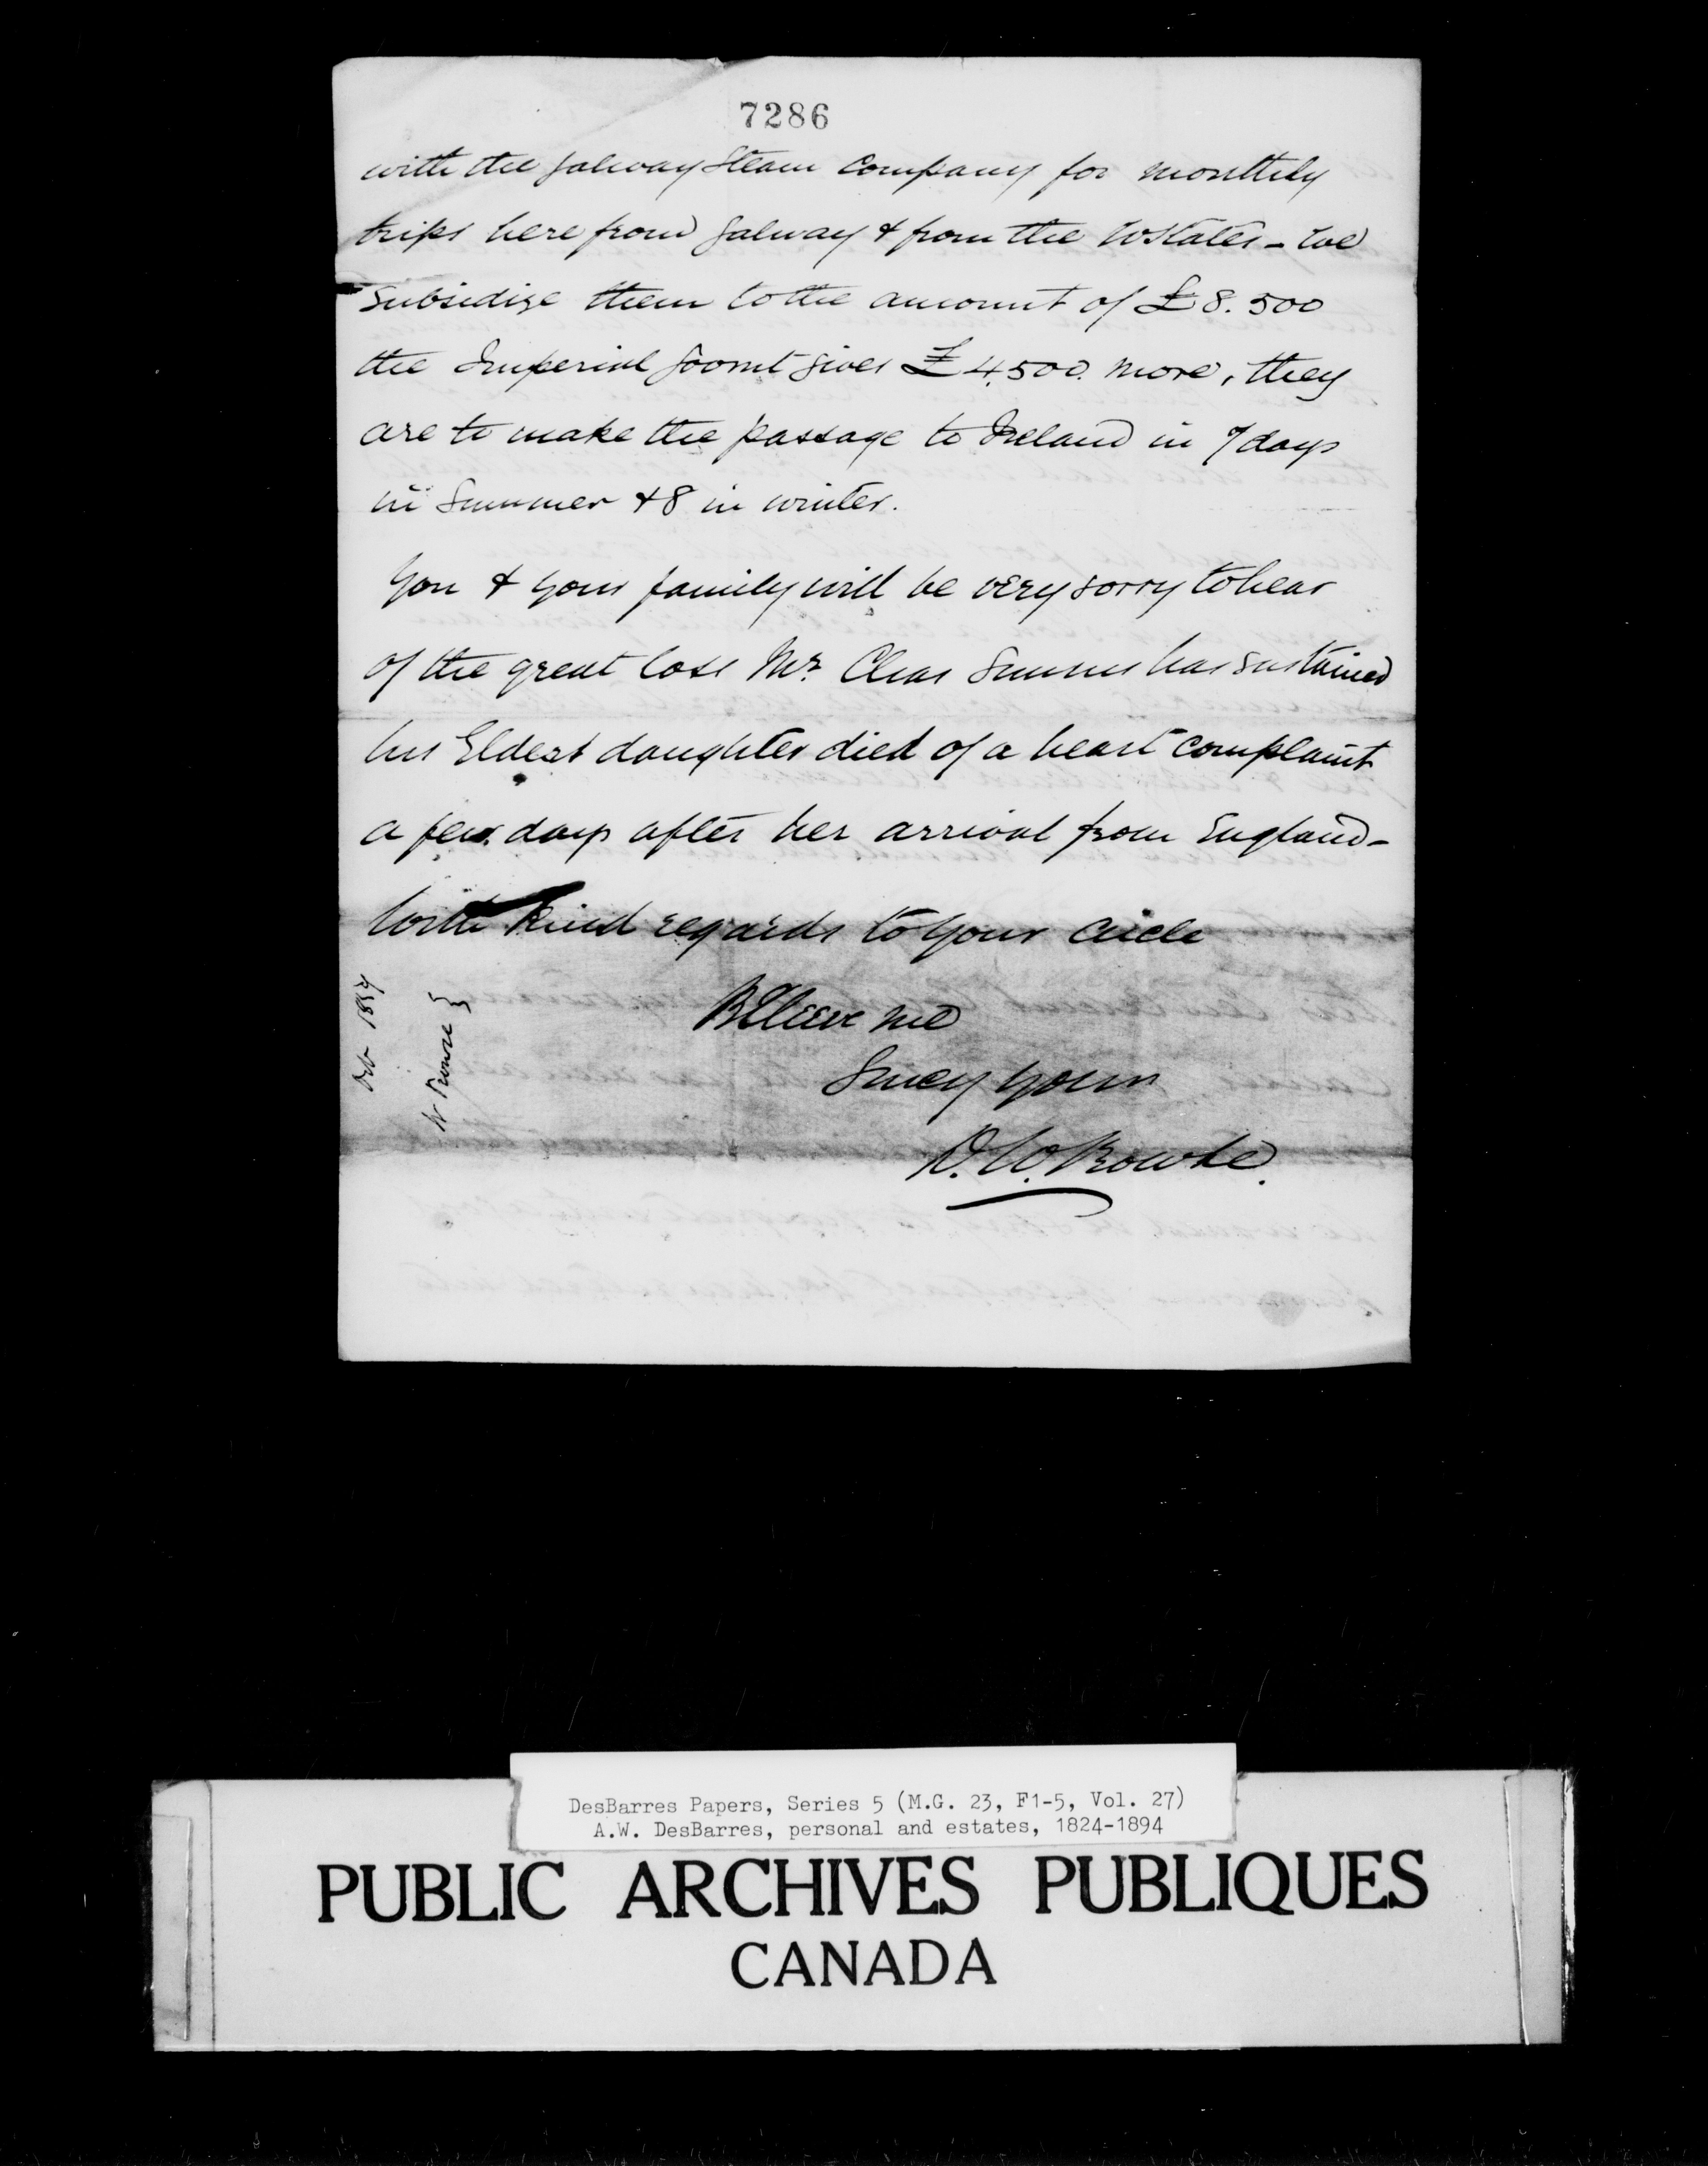 7286
with the Galway Steam Company for monthly
trips here from Galway & from the UStates - We
subsidize them to the amount of £8.500
the Imperial Govmt gives £4,500. more, they
are to make the passage to Ireland in 7 days
in Summer & 8 in winter.
You & your family will be very sorry to hear
of the great loss Mr. Chas has sustained
his Eldest daughter died of a heart complaint
a few days after her arrival from England -
With kind regards to your circle
Believe me
Sincy yours
D. W. Prowse.
W Prowse }
DesBarres Papers, Series 5 (M.G. 23, F1-5, Vol. 27)
A.W. DesBarres, personal and estates, 1824-1894
PUBLIC ARCHIVES PUBLIQUES
CANADA